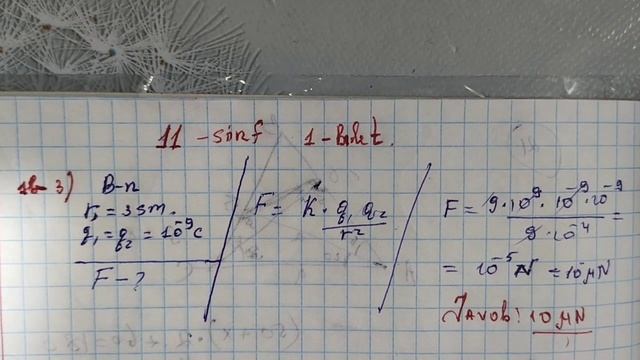 11 - sinf 1 - Bilet.
3) B-n
r = 3 sm.
q₁ = q₂ = 10⁻⁹ C
F - ?
F = K · q₁ q₂ / r²
F = 9 · 10⁹ · 10⁻⁹ · 10⁻⁹ / 9 · 10⁻⁴ =
= 10⁻⁵ N = 10 μN
Javob: 10 μN